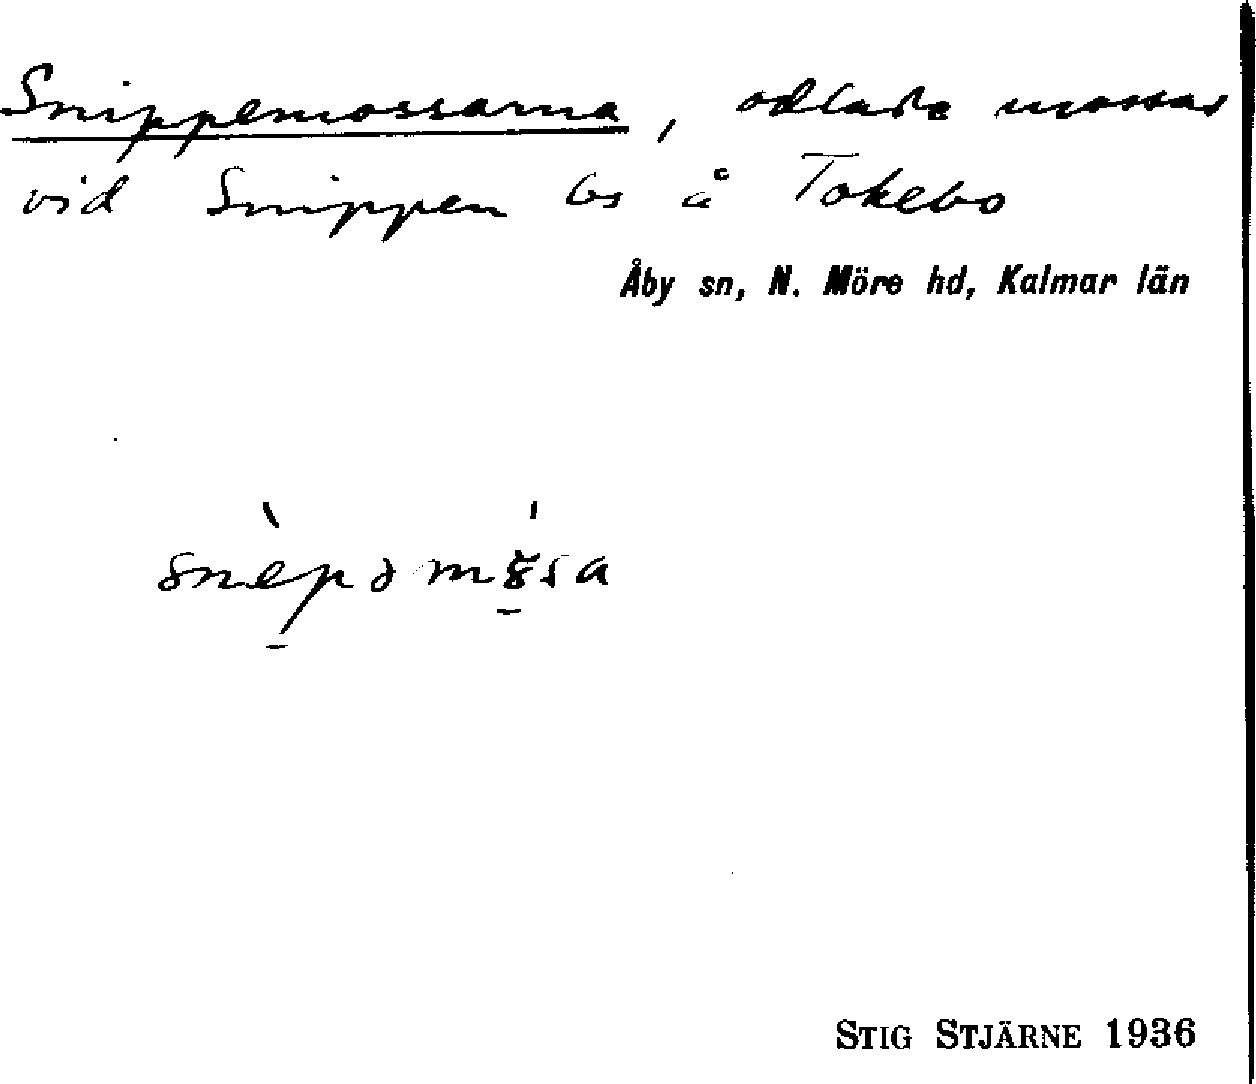 Snippemossarna, odlade mossar
vid Snippen ls å Tokebo
Åby sn, N. Möre hd, Kalmar län
STIG STJÄRNE 1936